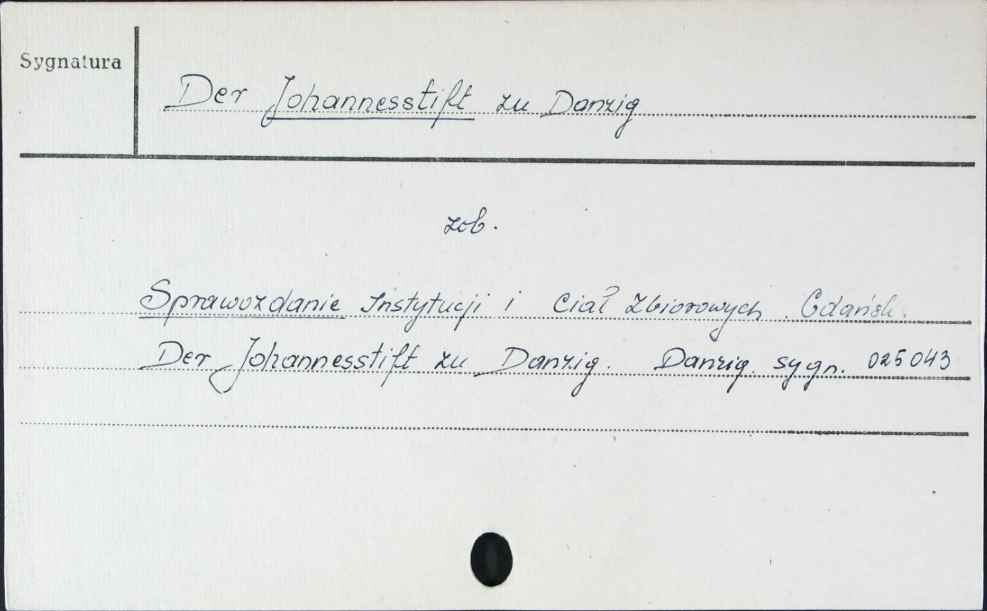 Sygnatura
Der Johannesstift zu Danzig
zob.
Sprawozdanie Instytucji i Ciał Zbiorowych Gdańsk.
Der Johannesstift zu Danzig. Danzig sygn. 025043